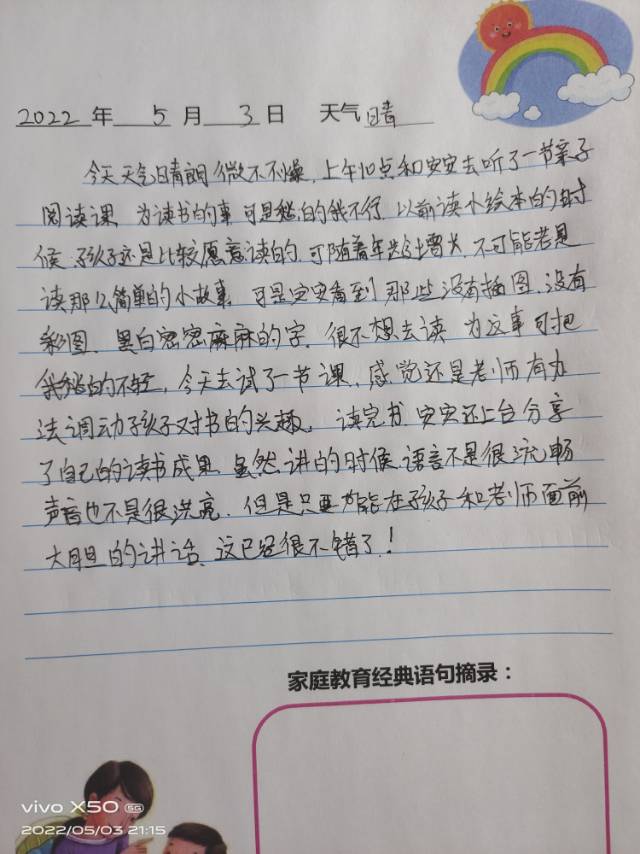 2022 年 5 月 3 日 天气 晴
今天天气晴朗 微不燥,上午10点和安安去听了一节亲子
阅读课 为读书的事 可是愁的我不行 以前读小绘本的时
候 孩子还是比较愿意读的 可随着年龄增大 不可能老是
读那么简单的小故事 可是安安看到那些没有插图、没有
彩图、黑白密密麻麻的字,很不想去读 为这事可把
我愁的不轻,今天去试了一节课,感觉还是老师有办
法调动孩子对书的兴趣。读完书 安安还上台分享
了自己的读书成果 虽然讲的时候 语言不是很流畅
声音也不是很洪亮,但是只要能在孩子和老师面前
大胆的讲话、这已经很不错了!
家庭教育经典语句摘录:
vivo X50 5G
2022/05/03 21:15